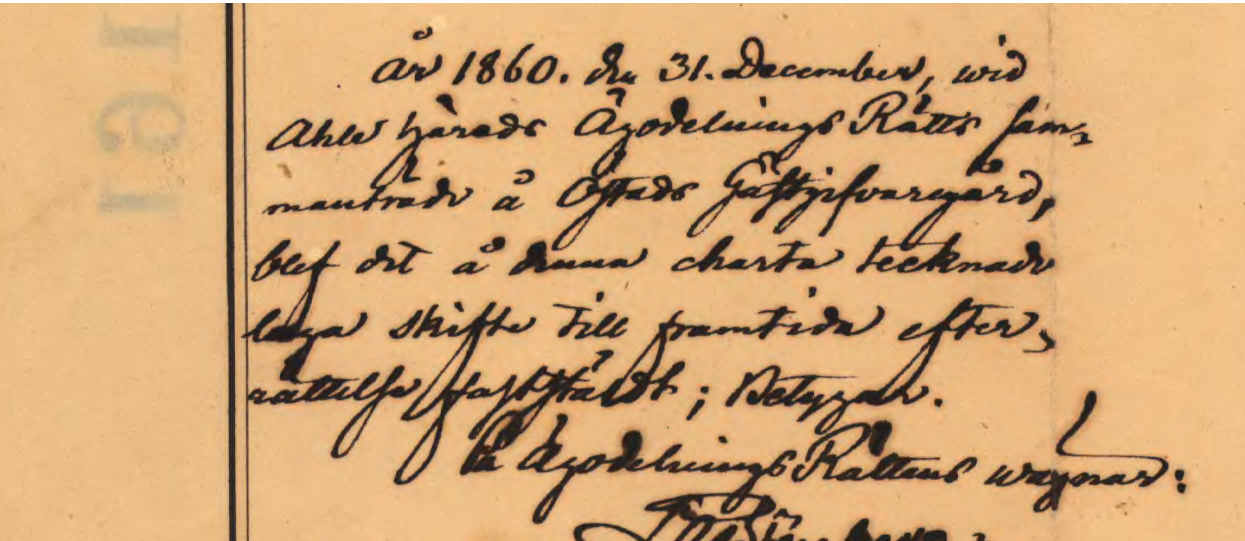 År 1860. den 31. December, wid
Ahle Härads Ägodelnings Rätts sam-
manträde å Östads Gästgifvaregård,
blef det å denna charta tecknade
laga skifte till framtida efter-
rättelse fastställdt; Betygar.
På Ägodelnings Rättens wägnar: